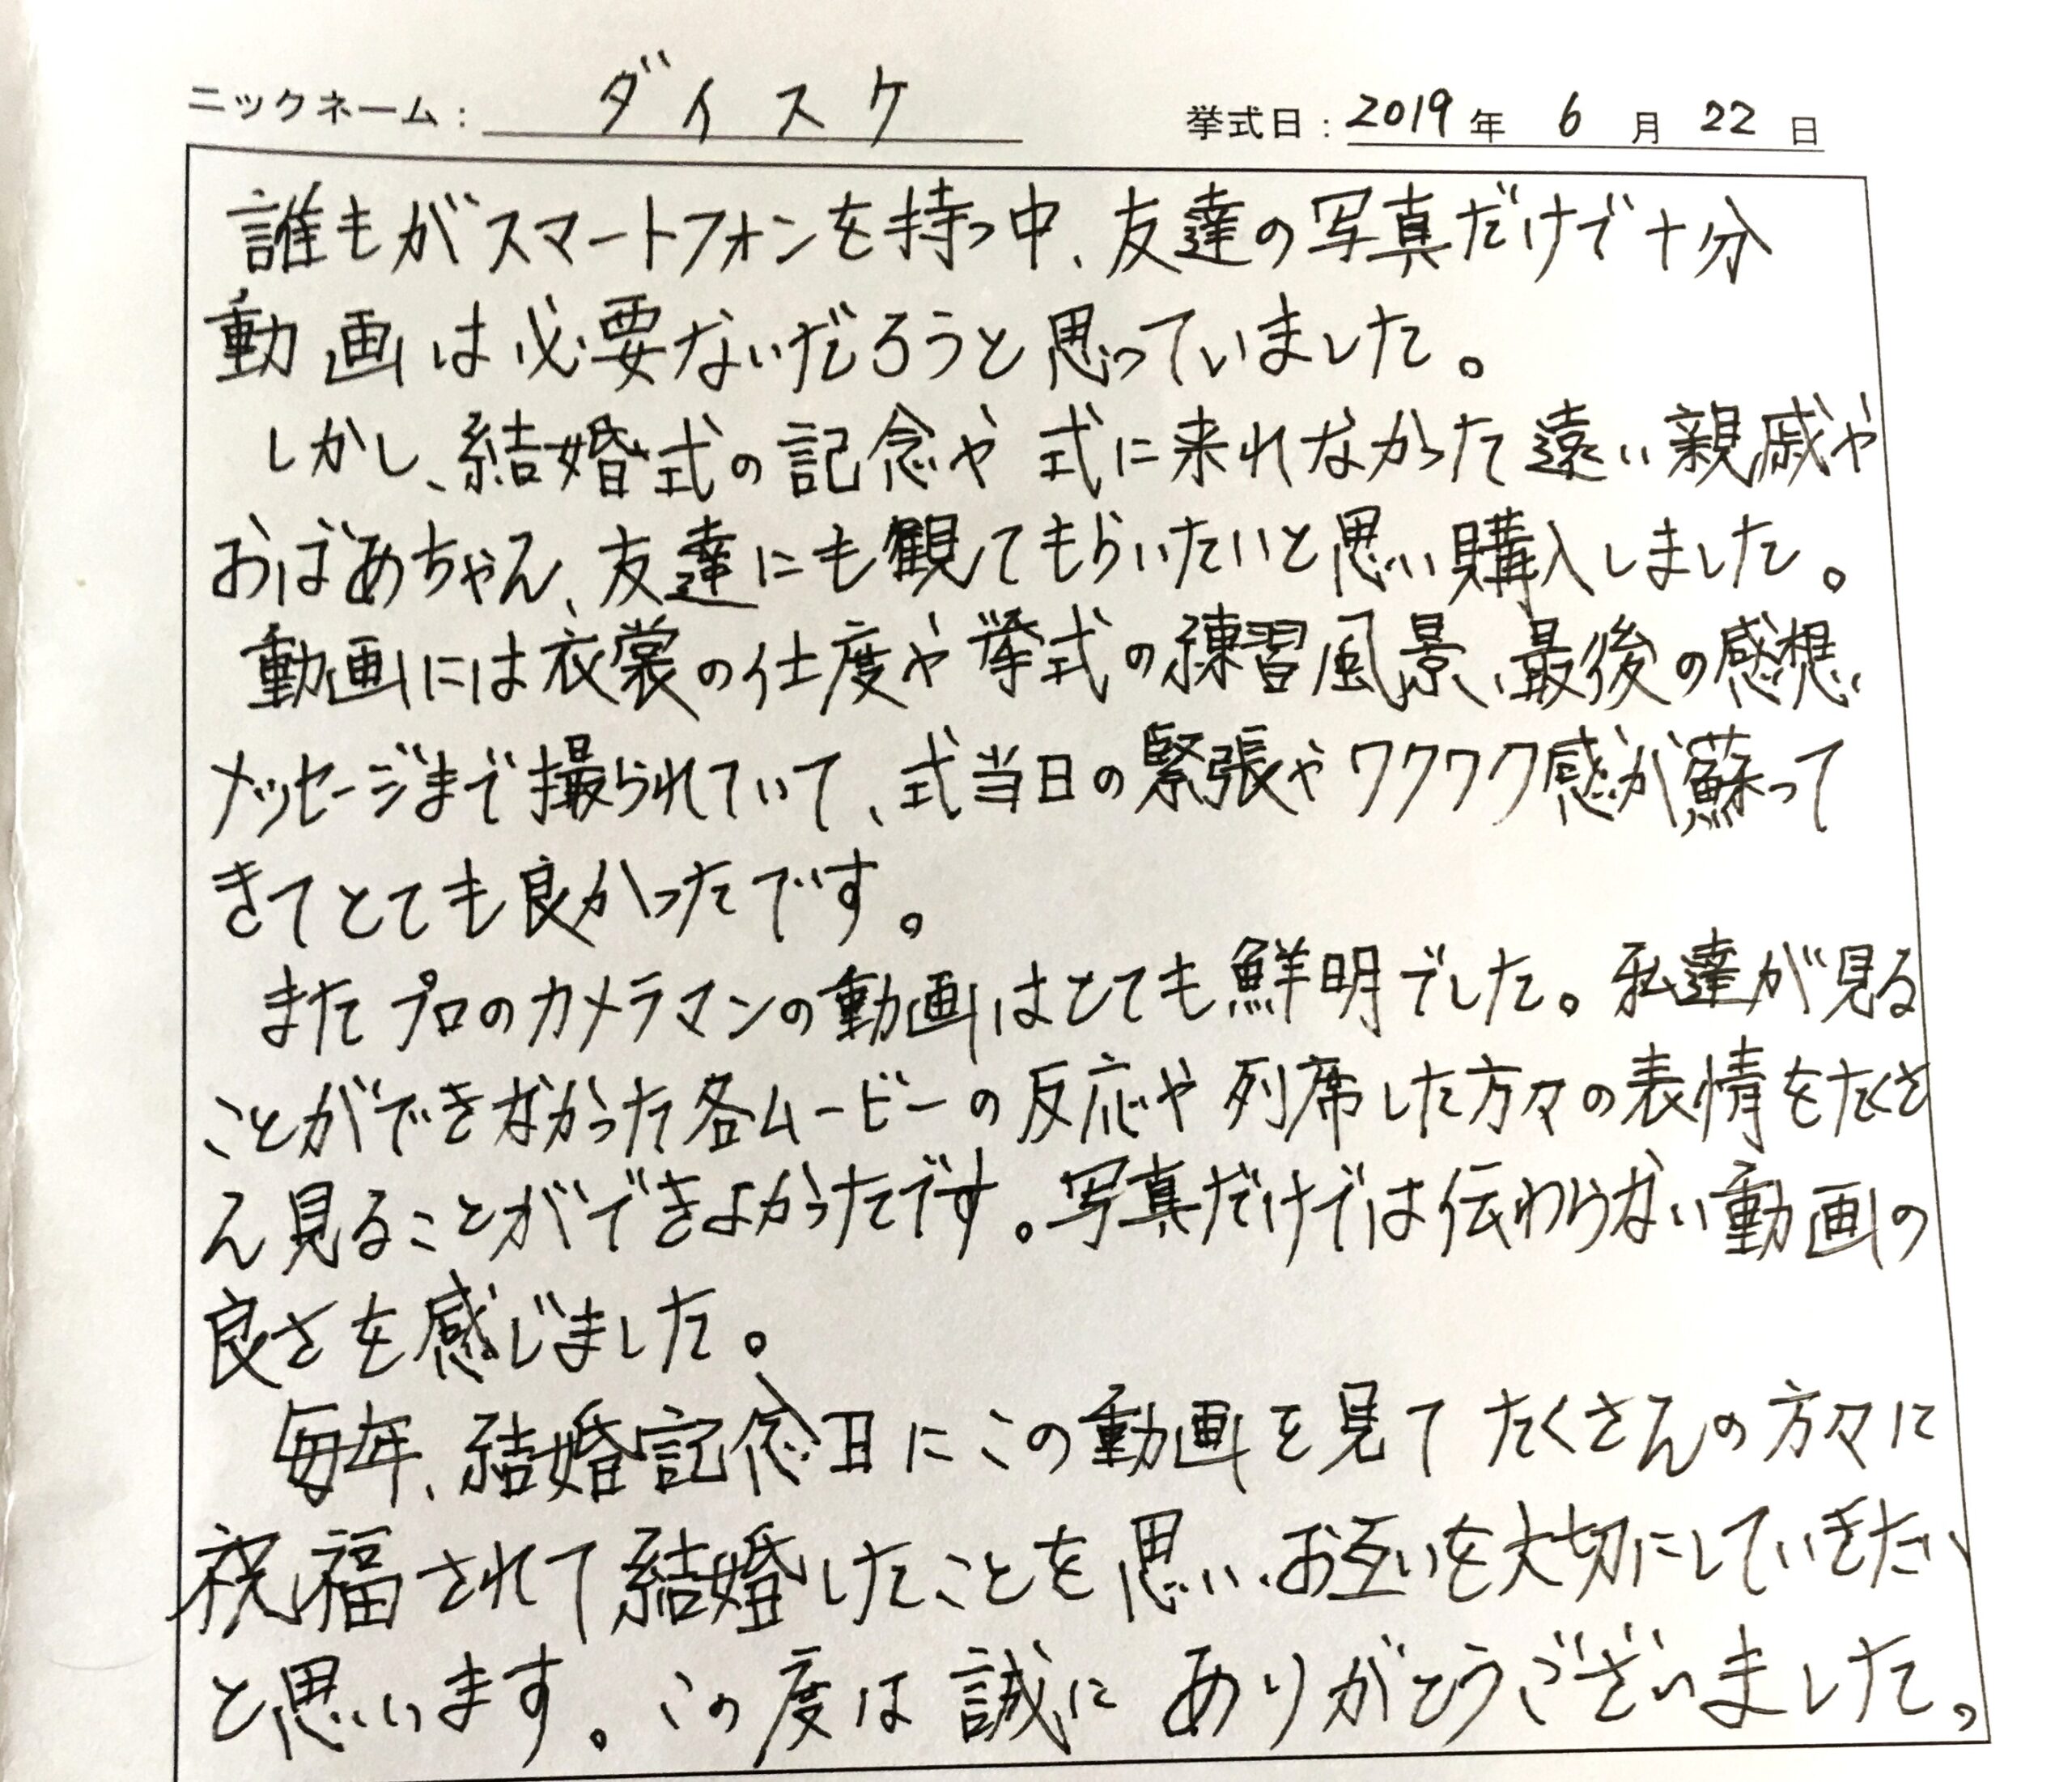 ニックネーム: ダイスケ 挙式日: 2019年 6月 22日
誰もがスマートフォンを持つ中、友達の写真だけで十分
動画は必要ないだろうと思っていました。
しかし、結婚式の記念や式に来れなかった遠い親戚や
おばあちゃん、友達にも観てもらいたいと思い購入しました。
動画には衣裳の仕度や挙式の練習風景、最後の感想、
メッセージまで撮られていて、式当日の緊張やワクワク感が蘇って
きてとても良かったです。
またプロのカメラマンの動画はとても鮮明でした。私達が見る
ことができなかった各ムービーの反応や列席した方々の表情をたくさ
ん見ることができよかったです。写真だけでは伝わらない動画の
良さを感じました。
毎年、結婚記念日にこの動画を見てたくさんの方々に
祝福されて結婚したことを思い、お互いを大切にしていきたい
と思います。この度は誠にありがとうございました。